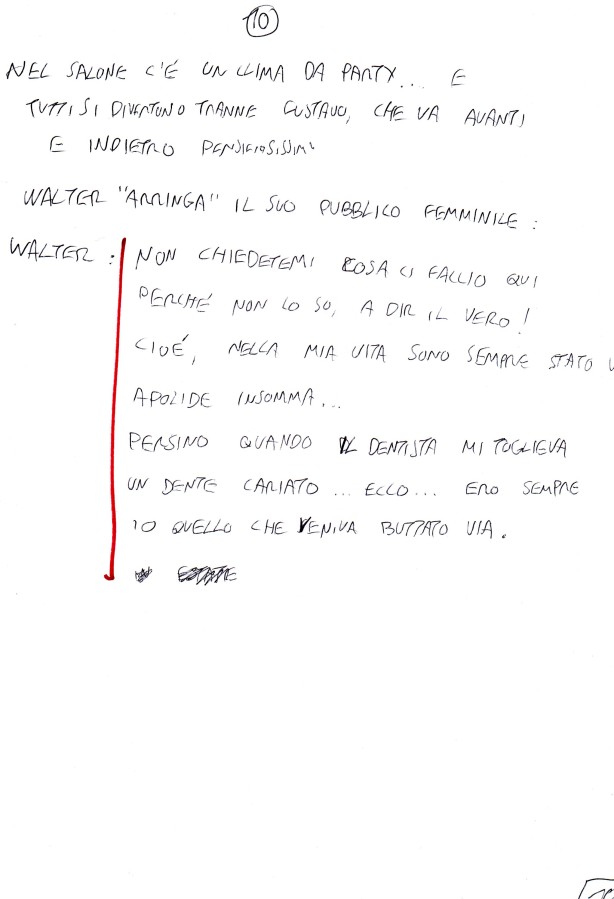 10
NEL SALONE C'É UN CLIMA DA PARTY... E
TUTTI SI DIVERTONO TRANNE GUSTAVO, CHE VA AVANTI
E INDIETRO PENSIEROSISSIMO
WALTER "ARRINGA" IL SUO PUBBLICO FEMMINILE :
WALTER : NON CHIEDETEMI COSA CI FACCIO QUI
PERCHÉ NON LO SO, A DIR IL VERO!
CIOÉ, NELLA MIA VITA SONO SEMPRE STATO
APOLIDE INSOMMA...
PERSINO QUANDO IL DENTISTA MI TOGLIEVA
UN DENTE CARIATO ... ECCO... ERO SEMPRE
IO QUELLO CHE VENIVA BUTTATO VIA.